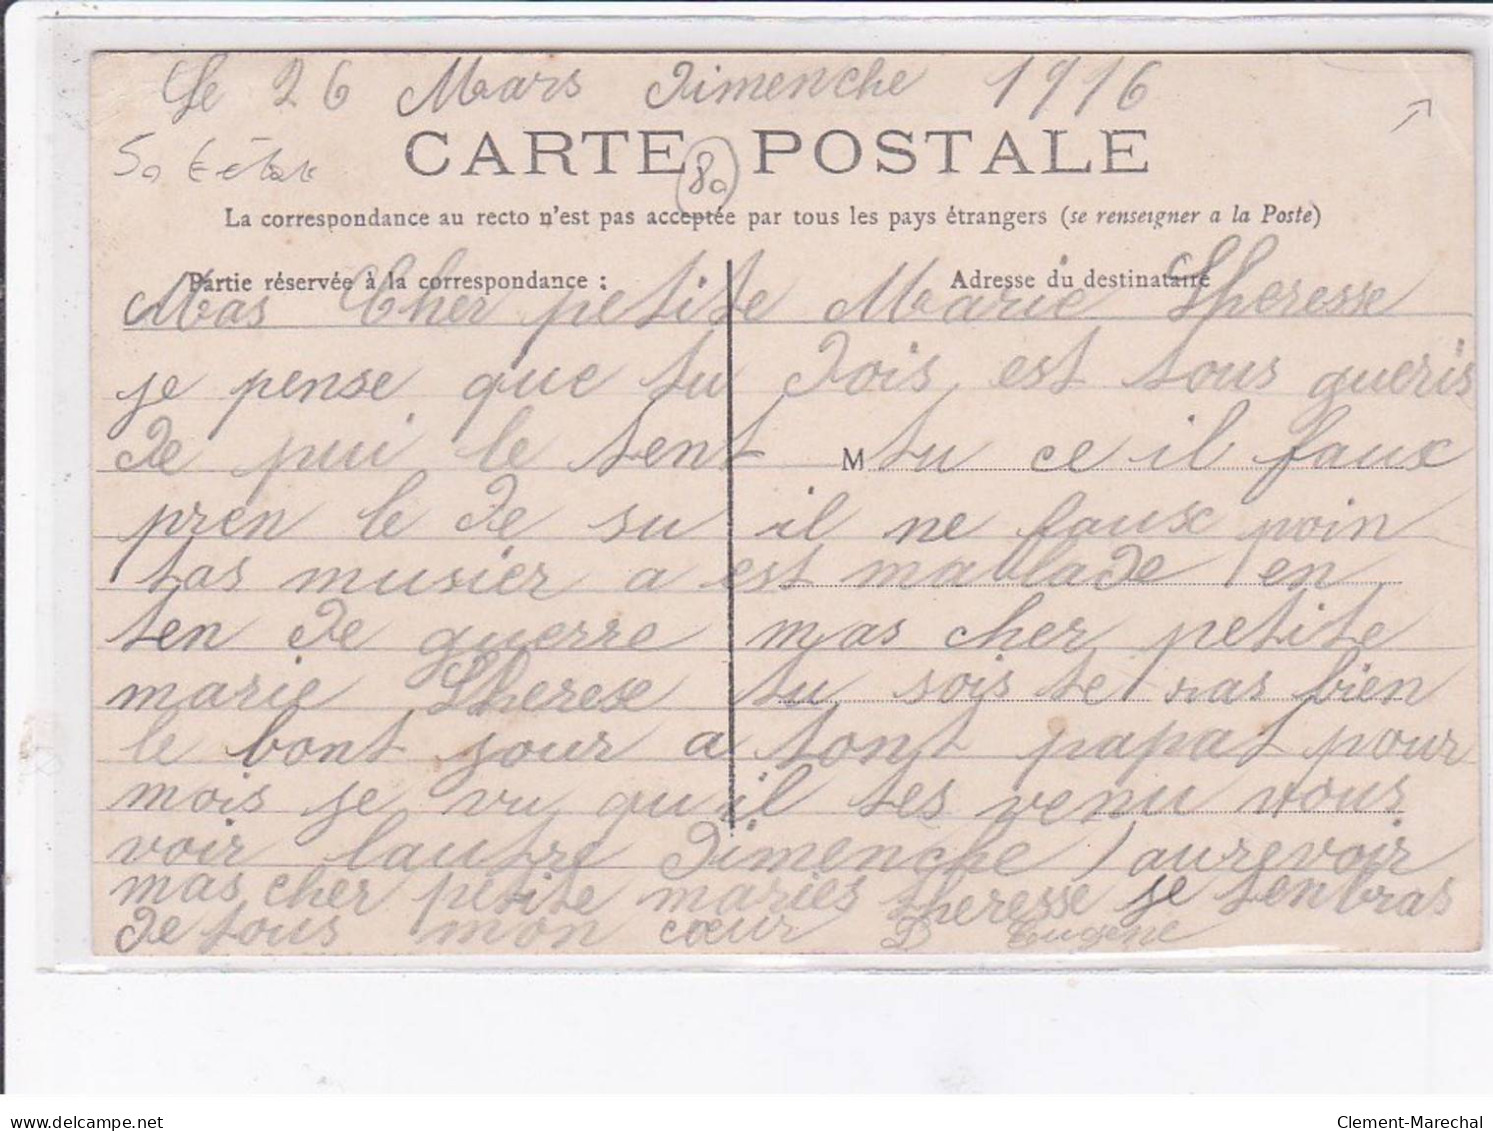 Le 26 Mars Dimenche 1916
CARTE POSTALE
80
La correspondance au recto n'est pas acceptée par tous les pays étrangers (se renseigner a la Poste)
Partie réservée à la correspondance : Adresse du destinataire
Mas Cher petite Marie Theresse
je pense que tu Dois est tous gueris
De pui le tent M tu ce il faux
pren le De su il ne faux poin
tas musier a est mablade en
ten De guerre mas cher petite
marie Therese tu sois te ras bien
le bont jour a tont papat pour
mois je vu qu il tes venu vous
voir lautre Dimenche aurevoir
mas cher petite maries theresse je tenbras
De tous mon cœur D Eugene
delcampe.net
Clement-Marechal